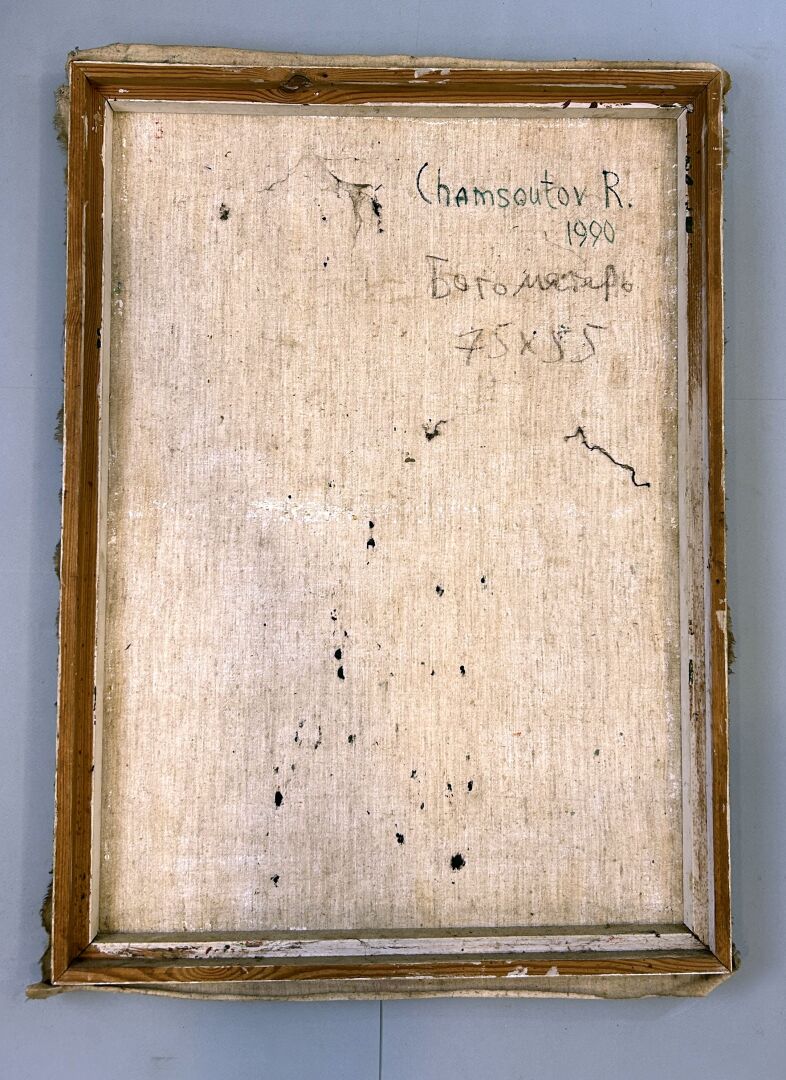 Chamsoutov R.
1990
Богоматерь
75x55